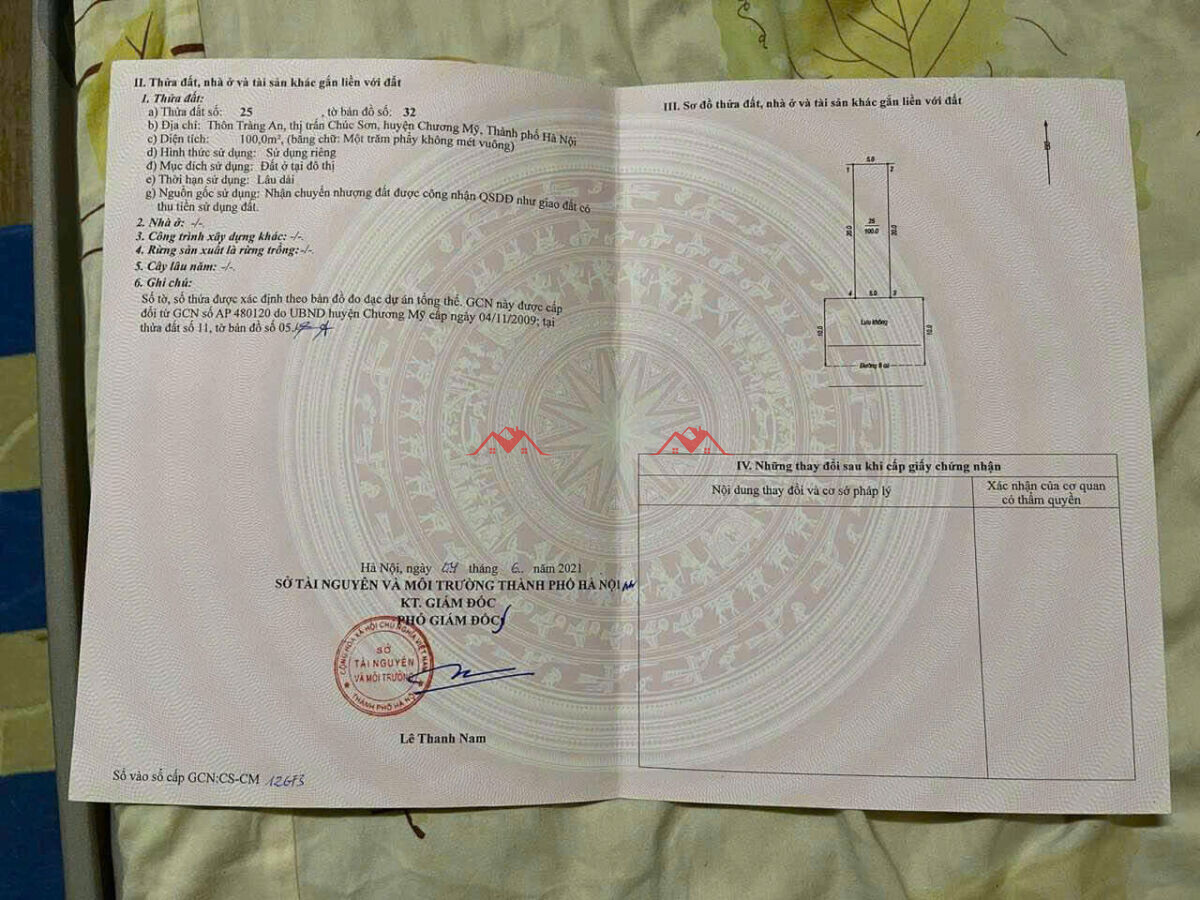 II. Thửa đất, nhà ở và tài sản khác gắn liền với đất
1. Thửa đất:
a) Thửa đất số: 25 , tờ bản đồ số: 32
b) Địa chỉ: Thôn Tràng An, thị trấn Chúc Sơn, huyện Chương Mỹ, Thành phố Hà Nội
c) Diện tích: 100,0m², (bằng chữ: Một trăm phẩy không mét vuông)
d) Hình thức sử dụng: Sử dụng riêng
đ) Mục đích sử dụng: Đất ở tại đô thị
e) Thời hạn sử dụng: Lâu dài
g) Nguồn gốc sử dụng: Nhận chuyển nhượng đất được công nhận QSDĐ như giao đất có
thu tiền sử dụng đất.
2. Nhà ở: -/-.
3. Công trình xây dựng khác: -/-.
4. Rừng sản xuất là rừng trồng:-/-.
5. Cây lâu năm: -/-.
6. Ghi chú:
Số tờ, số thửa được xác định theo bản đồ đo đạc dự án tổng thể. GCN này được cấp
đổi từ GCN số AP 480120 do UBND huyện Chương Mỹ cấp ngày 04/11/2009; tại
thửa đất số 11, tờ bản đồ số 05.
Hà Nội, ngày tháng 6 năm 2021
SỞ TÀI NGUYÊN VÀ MÔI TRƯỜNG THÀNH PHỐ HÀ NỘI
KT. GIÁM ĐỐC
PHÓ GIÁM ĐỐC
CỘNG HÒA XÃ HỘI CHỦ NGHĨA VIỆT NAM
SỞ
TÀI NGUYÊN
VÀ MÔI TRƯỜNG
THÀNH PHỐ HÀ NỘI
Lê Thanh Nam
Số vào sổ cấp GCN:CS-CM
III. Sơ đồ thửa đất, nhà ở và tài sản khác gắn liền với đất
B
5.0
1 2
20.0 25 20.0
100.0
4 5.0 3
10.0 Lưu không 10.0
IV. Những thay đổi sau khi cấp giấy chứng nhận
Nội dung thay đổi và cơ sở pháp lý
Xác nhận của cơ quan
có thẩm quyền